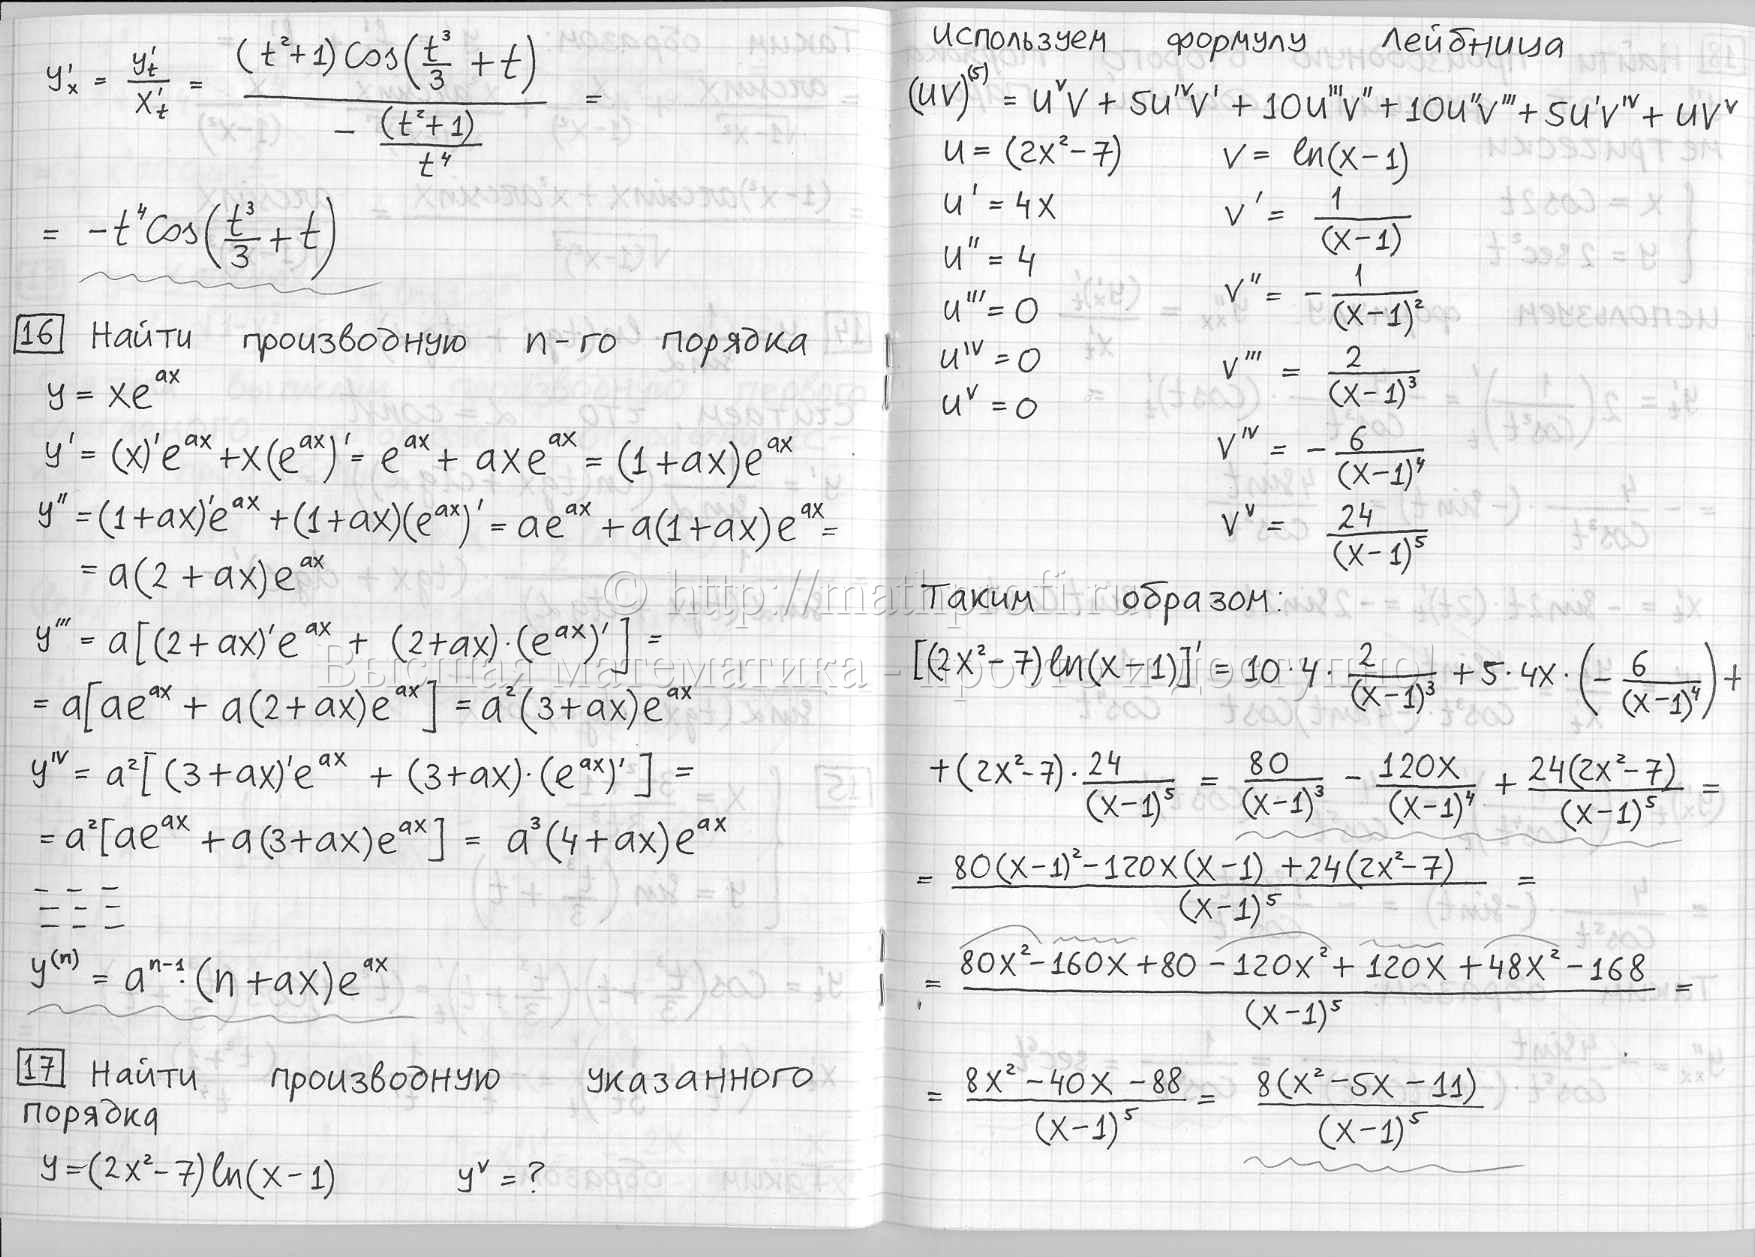 y'ₓ = y'ₜ / x'ₜ = (t²+1)Cos(t³/3 + t) / (−(t²+1)/t⁴) =
= −t⁴Cos(t³/3 + t)
16 Найти производную n-го порядка
y = xeᵃˣ
y' = (x)'eᵃˣ + x(eᵃˣ)' = eᵃˣ + axeᵃˣ = (1+ax)eᵃˣ
y'' = (1+ax)'eᵃˣ + (1+ax)(eᵃˣ)' = aeᵃˣ + a(1+ax)eᵃˣ =
= a(2+ax)eᵃˣ
y''' = a[(2+ax)'eᵃˣ + (2+ax)·(eᵃˣ)'] =
= a[aeᵃˣ + a(2+ax)eᵃˣ] = a²(3+ax)eᵃˣ
yᴵⱽ = a²[(3+ax)'eᵃˣ + (3+ax)·(eᵃˣ)'] =
= a²[aeᵃˣ + a(3+ax)eᵃˣ] = a³(4+ax)eᵃˣ
y⁽ⁿ⁾ = aⁿ⁻¹·(n+ax)eᵃˣ
17 Найти производную указанного
порядка
y = (2x²−7)ln(x−1) yⱽ = ?
Используем формулу Лейбница
(uv)⁽⁵⁾ = uⱽv + 5uᴵⱽv' + 10u'''v'' + 10u''v''' + 5u'vᴵⱽ + uvⱽ
u = (2x²−7) v = ln(x−1)
u' = 4x v' = 1/(x−1)
u'' = 4 v'' = −1/(x−1)²
u''' = 0 v''' = 2/(x−1)³
uᴵⱽ = 0 vᴵⱽ = −6/(x−1)⁴
uⱽ = 0 vⱽ = 24/(x−1)⁵
Таким образом:
[(2x²−7)ln(x−1)]' = 10·4·2/(x−1)³ + 5·4x·(−6/(x−1)⁴) +
+ (2x²−7)·24/(x−1)⁵ = 80/(x−1)³ − 120x/(x−1)⁴ + 24(2x²−7)/(x−1)⁵ =
= (80(x−1)² − 120x(x−1) + 24(2x²−7))/(x−1)⁵ =
= (80x² − 160x + 80 − 120x² + 120x + 48x² − 168)/(x−1)⁵ =
= (8x² − 40x − 88)/(x−1)⁵ = 8(x² − 5x − 11)/(x−1)⁵
© http://mathprofi.ru
Высшая математика - просто и доступно!